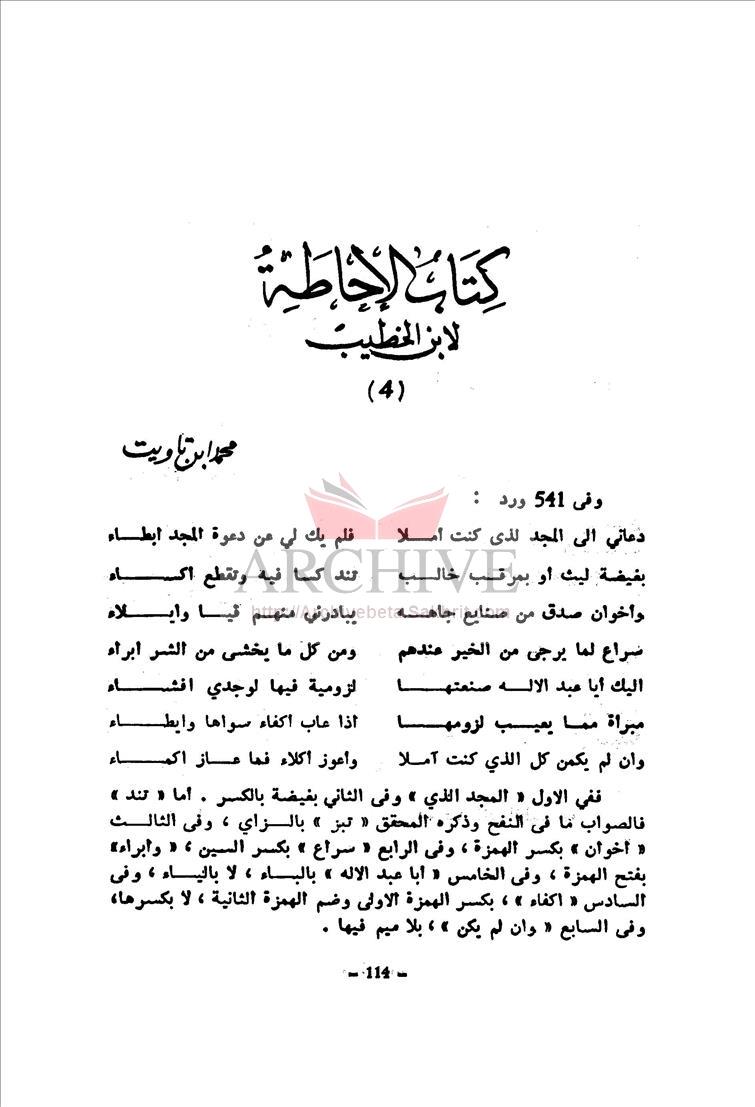 كِتَابُ الإِحَاطَةِ
لابن الخطيب
(4)
محمد ابن تاويت
وفى 541 ورد :
دعاني الى المجد لذى كنت آمـلا فلم يك لي عن دعوة المجد ابطـاء
بغيضة ليث أو بمرقب خالب تند كسا فيه وتقطع اكساء
وأخوان صدق من صنايع جاهه يبادرني منهم قيا وايلاء
سراع لما يرجى من الخير عندهم ومن كل ما يخشى من الشر ابراء
اليك أيا عبد الالـه صنعتهـا لزومية فيها لوجدي افشاء
مبرأة مما يعيب لزومهـا اذا عاب اكفاء سواها وايطاء
وان لم يكمن كل الذي كنت آملا وأعوز اكلاء فما عاز اكماء
ففي الاول « المجد الذي » وفى الثاني بغيضة بالكسر . أما « تند »
فالصواب ما فى النفح وذكره المحقق « تبز » بالزاي ، وفى الثالث
« أخوان » بكسر الهمزة ، وفى الرابع « سراع » بكسر السين ، « وابراء»
بفتح الهمزة ، وفى الخامس « أبا عبد الاله » بالباء ، لا بالياء ، وفى
السادس « اكفاء » ، بكسر الهمزة الاولى وضم الهمزة الثانية ، لا بكسرها،
وفى السابع « وان لم يكن » ، بلا ميم فيها .
– 114 –
ARCHIVE
http://Archivebeta.Sakhrit.com